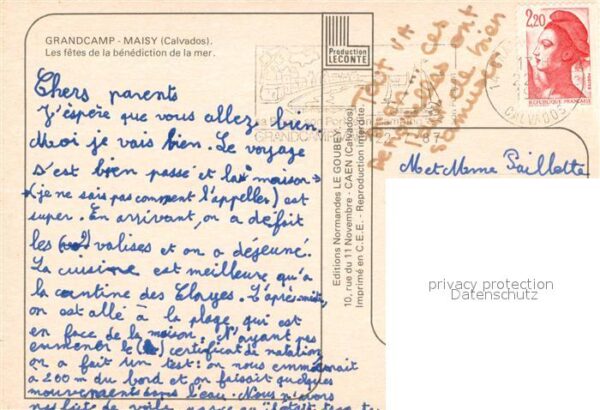 GRANDCAMP - MAISY (Calvados).
Les fêtes de la bénédiction de la mer.
Chers parents
J'espère que vous allez bien.
Moi je vais bien. Le voyage
s'est bien passé et la "maison"
(je ne sais pas comment l'appeller) est
super. En arrivant, on a défait
les valises et on a déjeuné.
La cuisine est meilleure qu'à
la cantine des Clayes. L'après-midi,
on est allé à la plage qui est
en face de la maison. N'ayant pas
emmener le certificat de natation
on a fait un test: on nous emmenait
à 200 m du bord et on faisait quelques
mouvements dans l'eau. Nous n'avons
pas fait de voile
Production
LECONTE
Editions Normandes LE GOUBEY
10, rue du 11 Novembre - CAEN (Calvados)
Imprimé en C.E.E. - Reproduction interdite.
Tout va
bien ces
ont
bien
2,20
REPUBLIQUE FRANÇAISE
CALVADOS
GRANDCAMP
87
M et Mme Paillette
privacy protection
Datenschutz